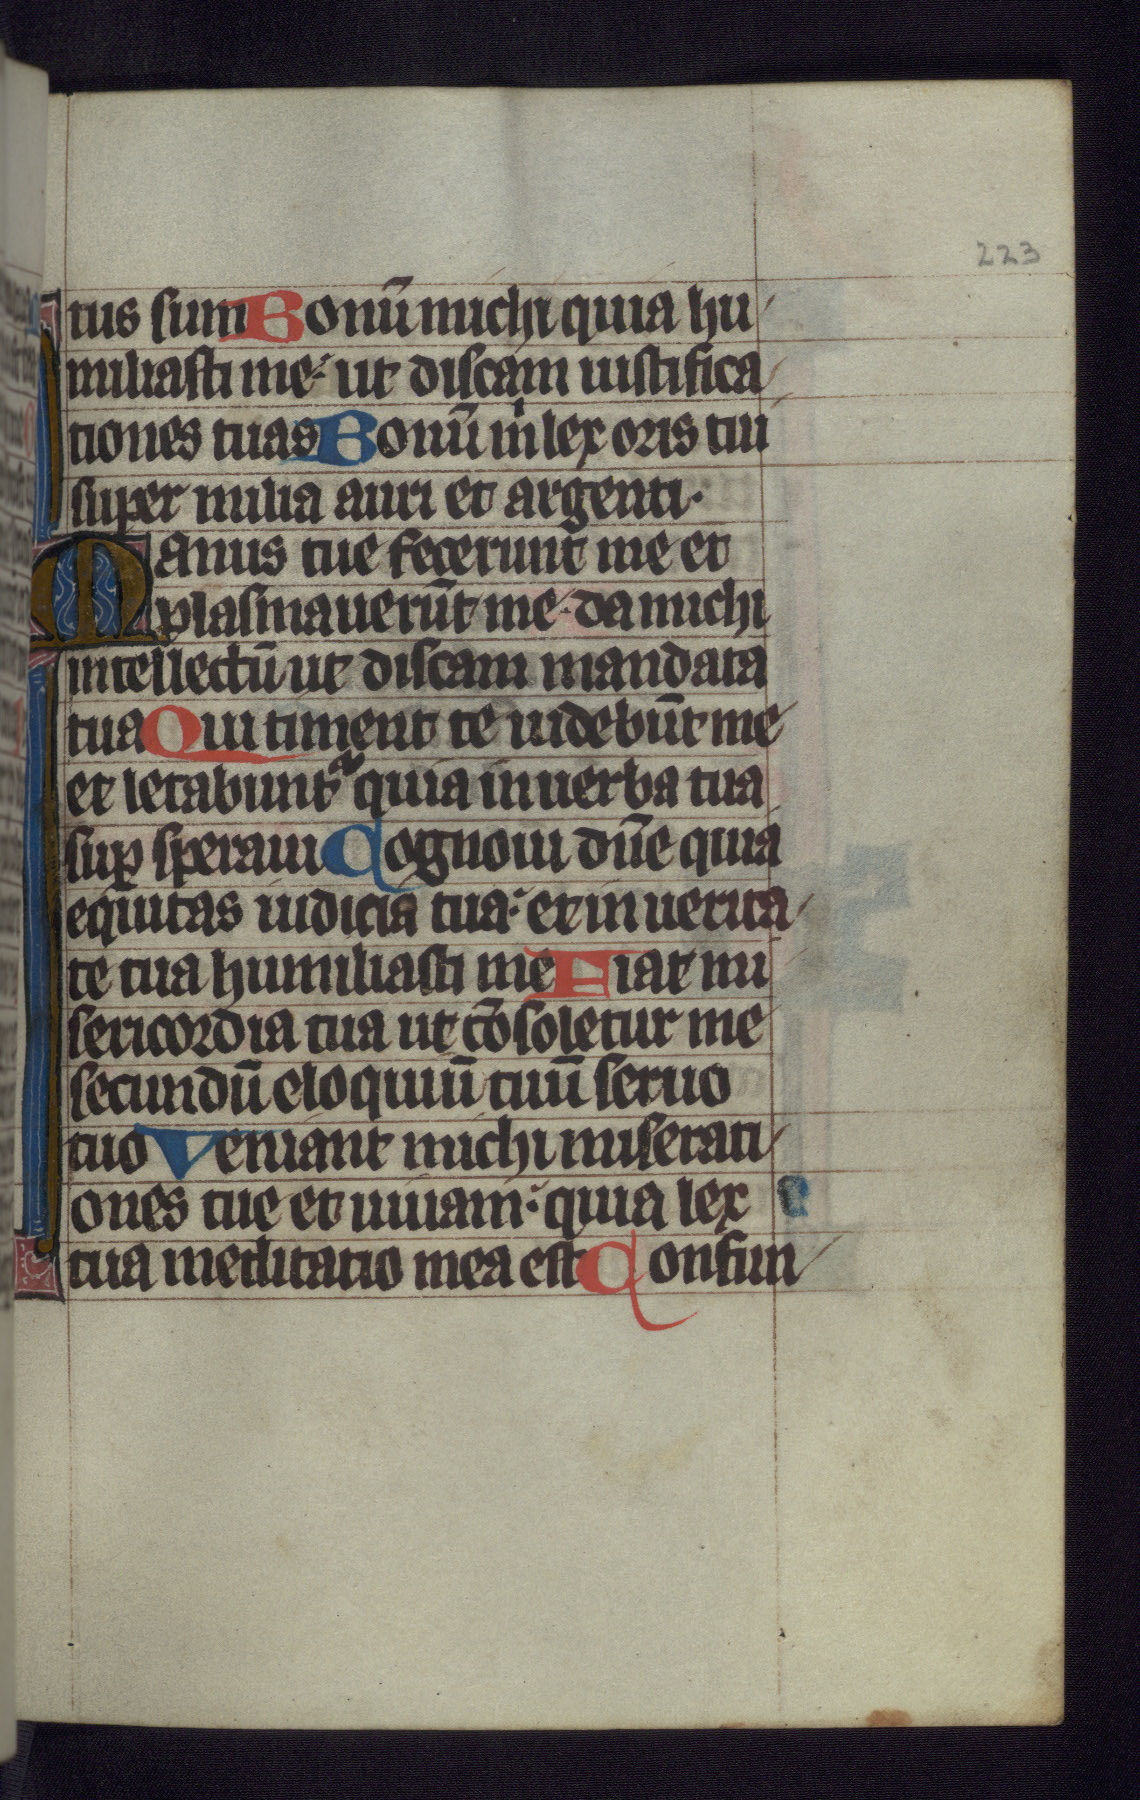 223
tus sum Bonū michi quia hu
miliasti me. ut discam iustifica
tiones tuas Bonū m̍ lex oris tui
super milia auri et argenti.
Manus tue fecerunt me et
plasmauerūt me. da michi
intellectū ut discam mandata
tua Qui timent te uidebūt me
et letabunt᷑ quia in uerba tua
suꝑ speraui Cognoui dn̄e quia
equitas iudicia tua. et in uerita
te tua humiliasti me Fiat mi
sericordia tua ut cōsoletur me
secundū eloquiū tuū seruo
tuo Veniant michi miserati
ones tue et uiuam. quia lex
tua meditatio mea est Confun